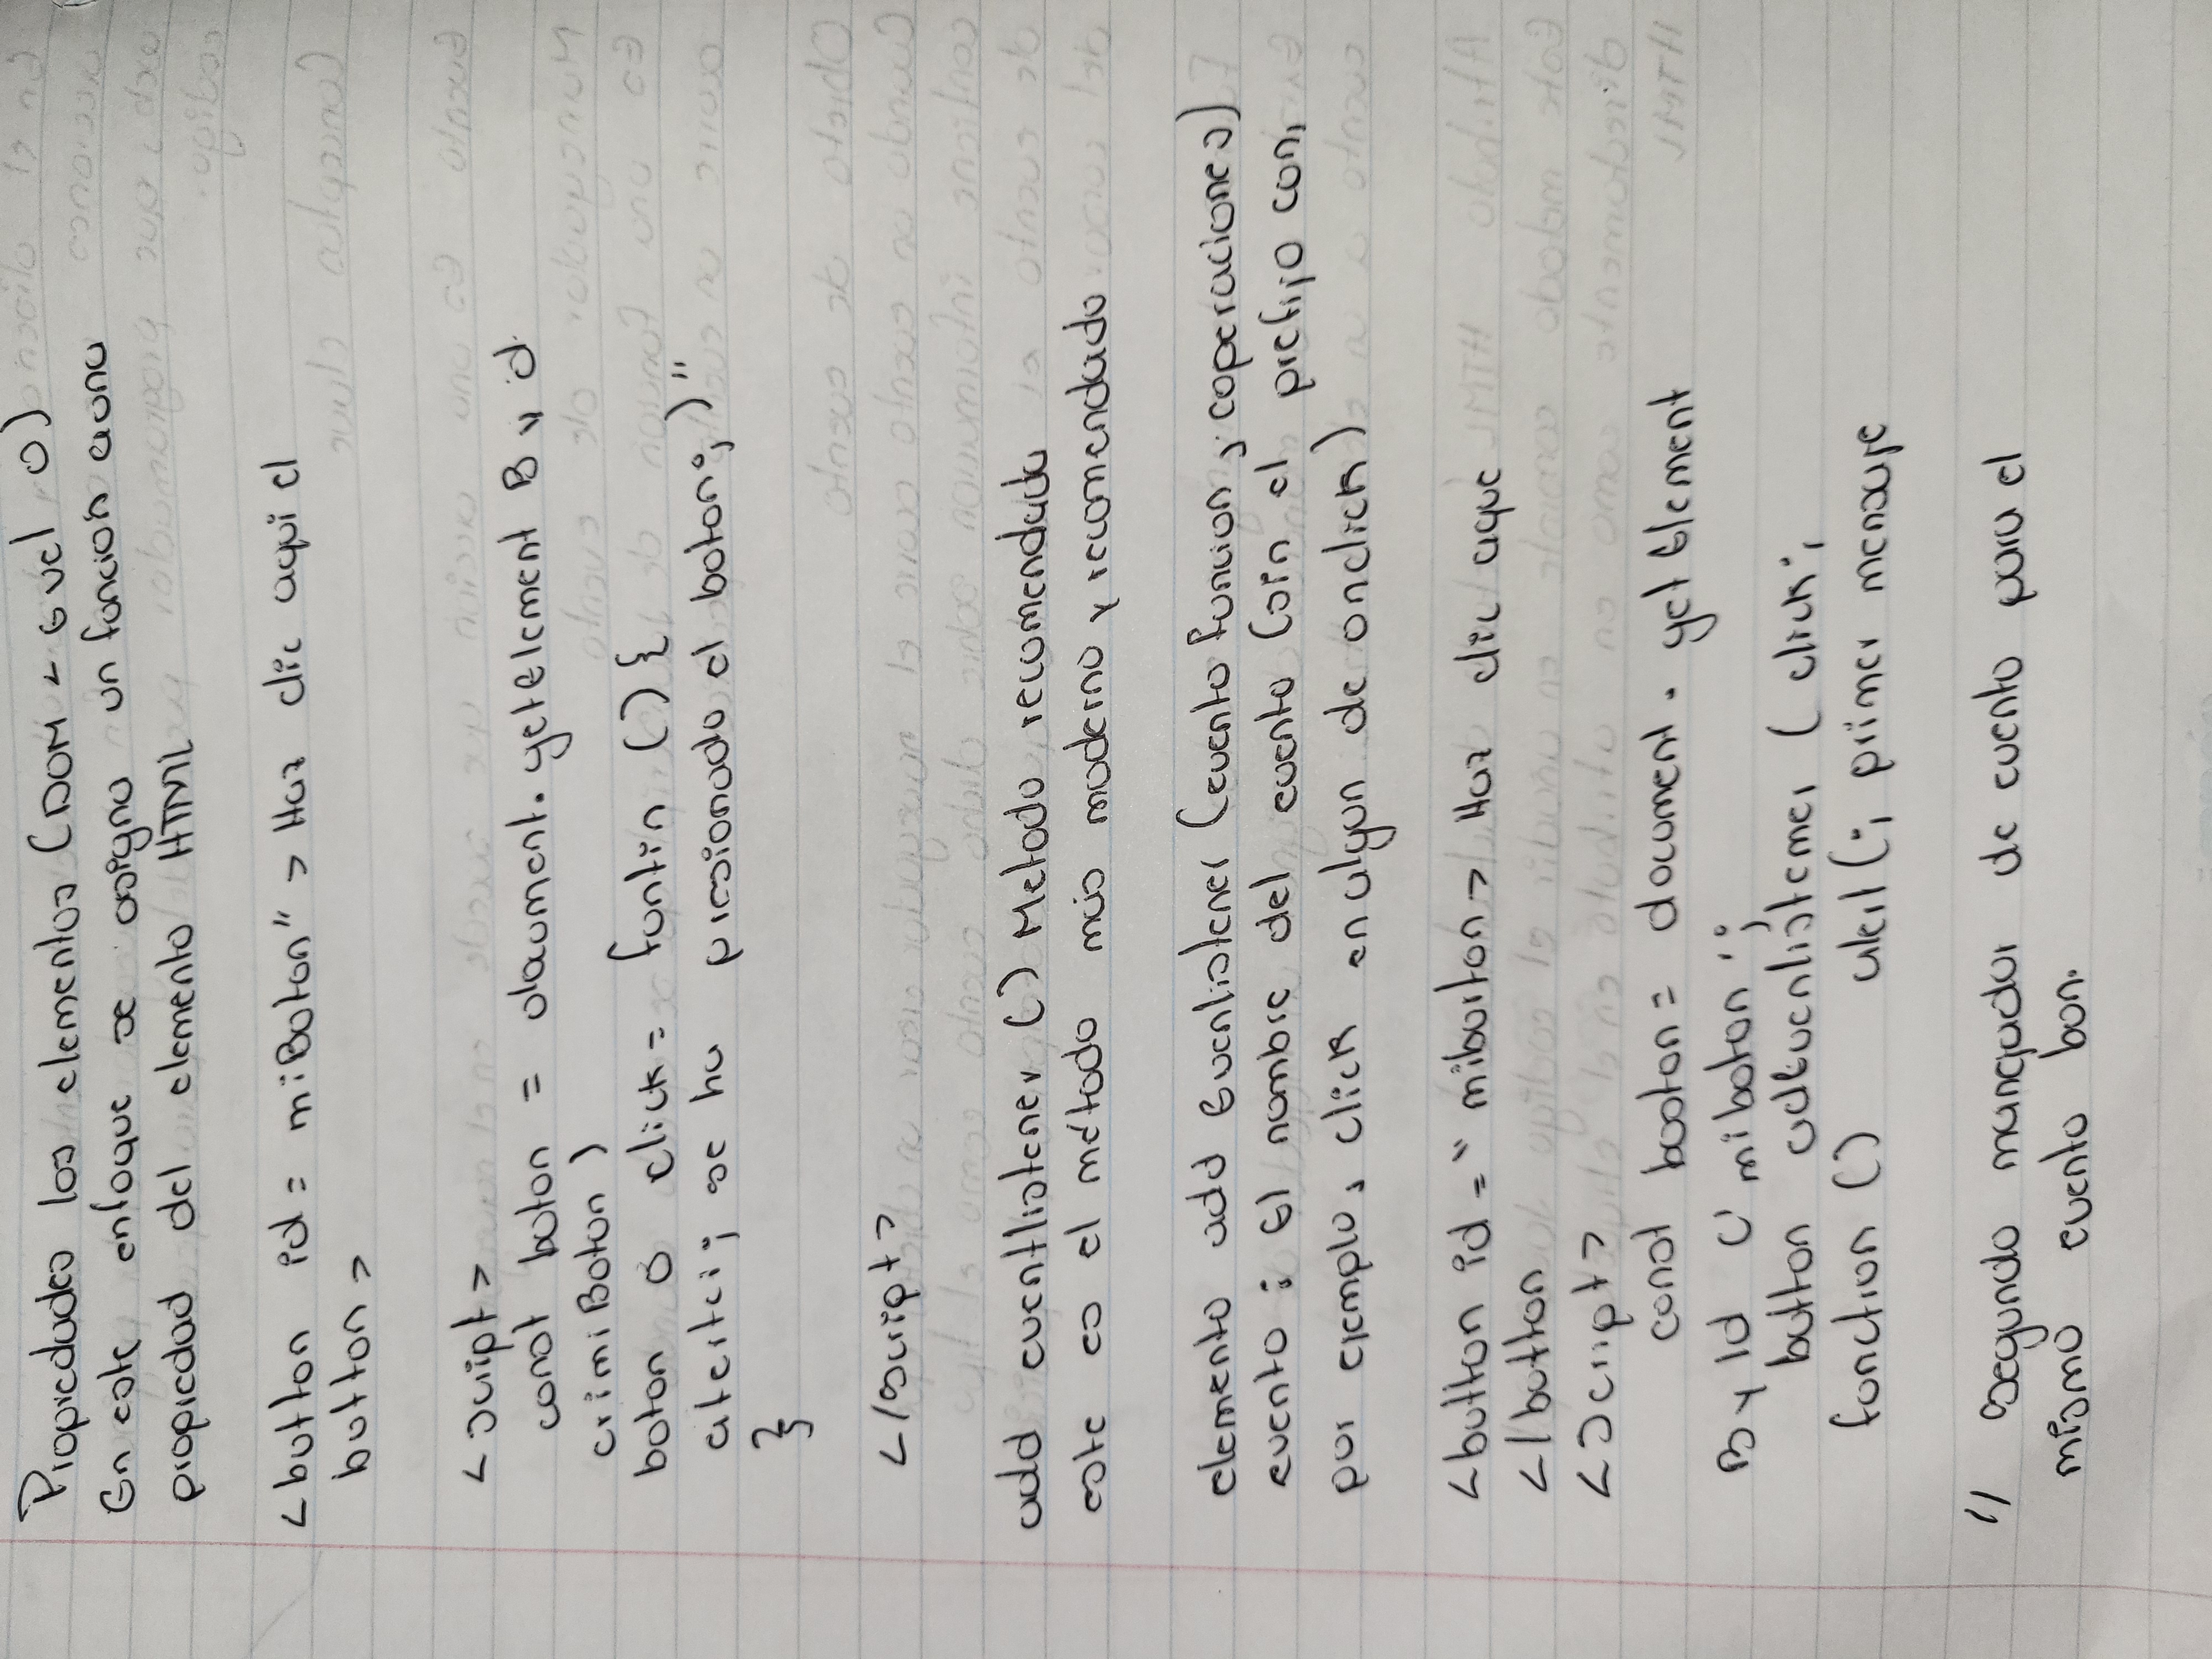 Propiedades los elementos (DOM - Evel 0)
En este enfoque se asigna un función a una
propiedad del elemento HTML
<button id = miBoton" > Haz clic aqui el
button >
<script>
const boton = document. getElement By d
crimiBoton )
boton o click = funtin () {
atertci ; se ha presionado el boton ; )"
}
</script>
add eventlistener () Metodo recomendada
este es el método más moderno y recomendado
elemento add Evenlistener (evento funcion , coperaciones)
evento : El nombre del evento (sin el prefijo con,
por ejemplo, click en algun de onclick)
<button id = " miborton > Haz clic aque
</button
<Script>
const booton = document . get Element
By Id (' miboton ' ;
button adEvenlistemer ( click ' ,
fonction () alert ( ; primer mensaje
// Segundo manejador de evento para el
mismo evento bon.